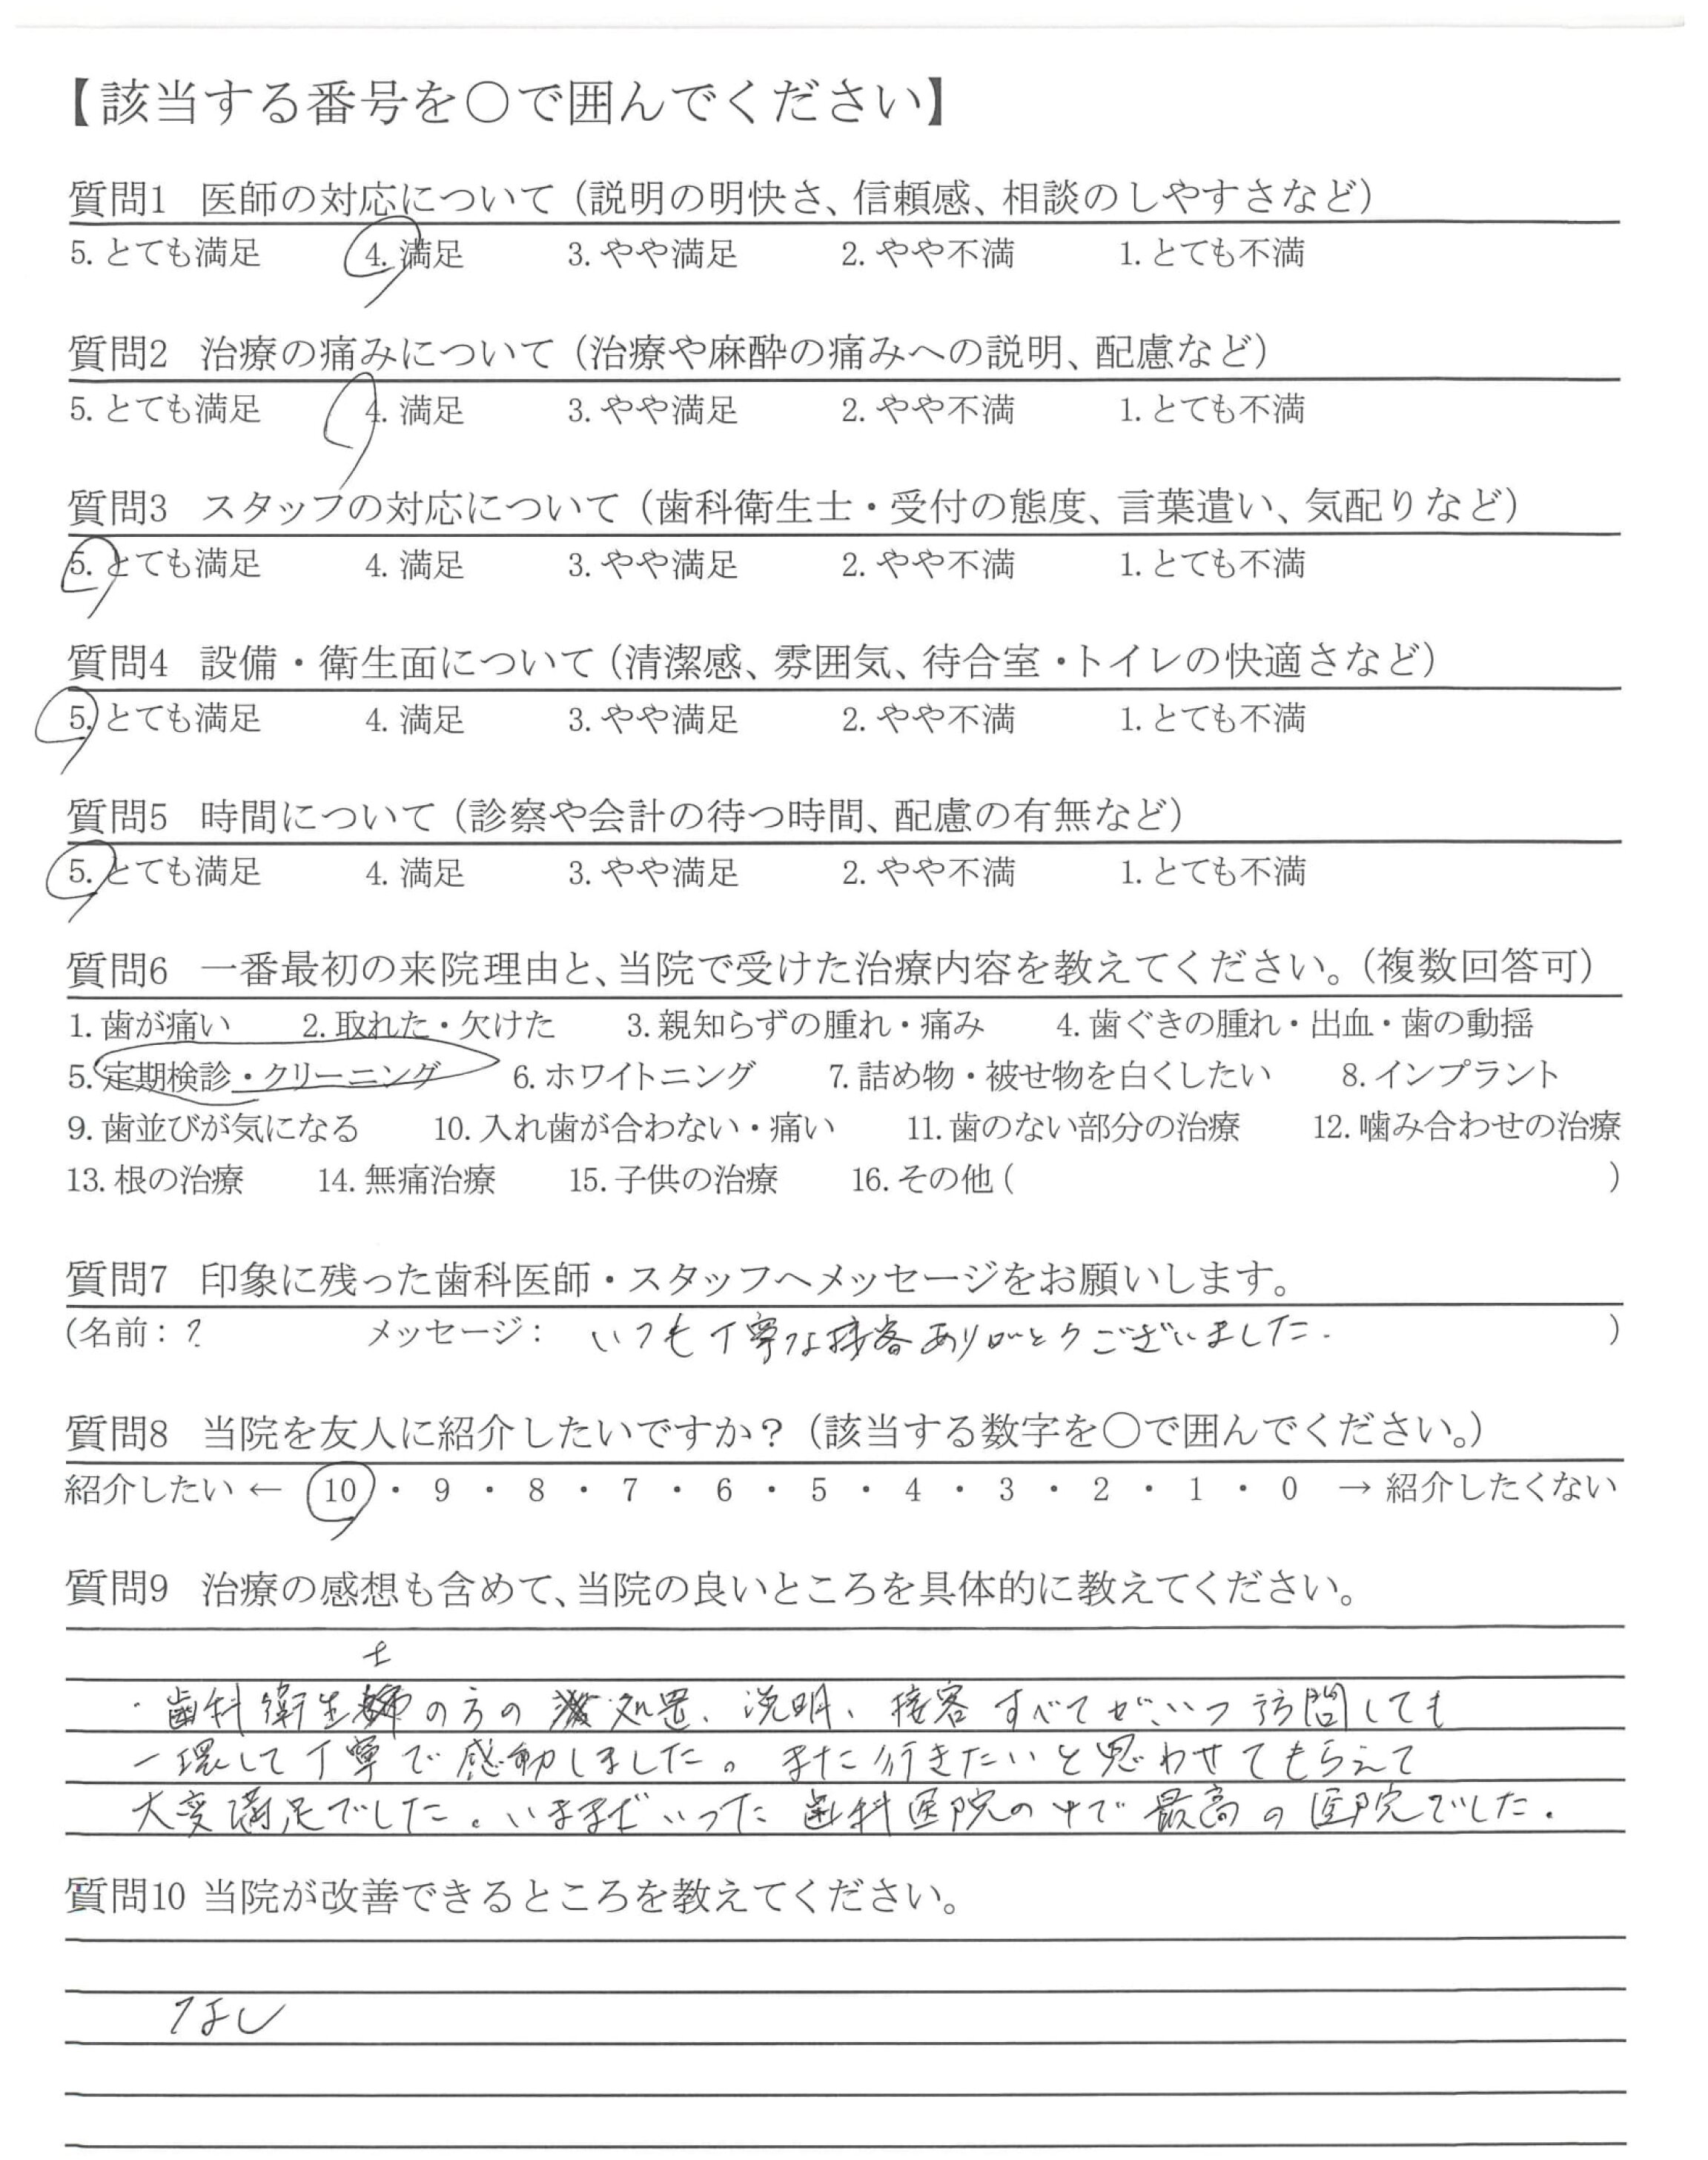 【該当する番号を○で囲んでください】
質問1 医師の対応について（説明の明快さ、信頼感、相談のしやすさなど）
5. とても満足 4. 満足 3. やや満足 2. やや不満 1. とても不満
質問2 治療の痛みについて（治療や麻酔の痛みへの説明、配慮など）
5. とても満足 4. 満足 3. やや満足 2. やや不満 1. とても不満
質問3 スタッフの対応について（歯科衛生士・受付の態度、言葉遣い、気配りなど）
5. とても満足 4. 満足 3. やや満足 2. やや不満 1. とても不満
質問4 設備・衛生面について（清潔感、雰囲気、待合室・トイレの快適さなど）
5. とても満足 4. 満足 3. やや満足 2. やや不満 1. とても不満
質問5 時間について（診察や会計の待つ時間、配慮の有無など）
5. とても満足 4. 満足 3. やや満足 2. やや不満 1. とても不満
質問6 一番最初の来院理由と、当院で受けた治療内容を教えてください。（複数回答可）
1. 歯が痛い 2. 取れた・欠けた 3. 親知らずの腫れ・痛み 4. 歯ぐきの腫れ・出血・歯の動揺
5. 定期検診・クリーニング 6. ホワイトニング 7. 詰め物・被せ物を白くしたい 8. インプラント
9. 歯並びが気になる 10. 入れ歯が合わない・痛い 11. 歯のない部分の治療 12. 噛み合わせの治療
13. 根の治療 14. 無痛治療 15. 子供の治療 16. その他（ ）
質問7 印象に残った歯科医師・スタッフへメッセージをお願いします。
（名前：? メッセージ： いつも丁寧な接客ありがとうございました. ）
質問8 当院を友人に紹介したいですか？（該当する数字を○で囲んでください。）
紹介したい ← 10 ・ 9 ・ 8 ・ 7 ・ 6 ・ 5 ・ 4 ・ 3 ・ 2 ・ 1 ・ 0 → 紹介したくない
質問9 治療の感想も含めて、当院の良いところを具体的に教えてください。
士
・歯科衛生の方の処置、説明、接客すべてがいつ訪問しても
一環して丁寧で感動しました。また行きたいと思わせてもらえて
大変満足でした。いままでいった歯科医院の中で最高の医院でした.
質問10 当院が改善できるところを教えてください。
なし